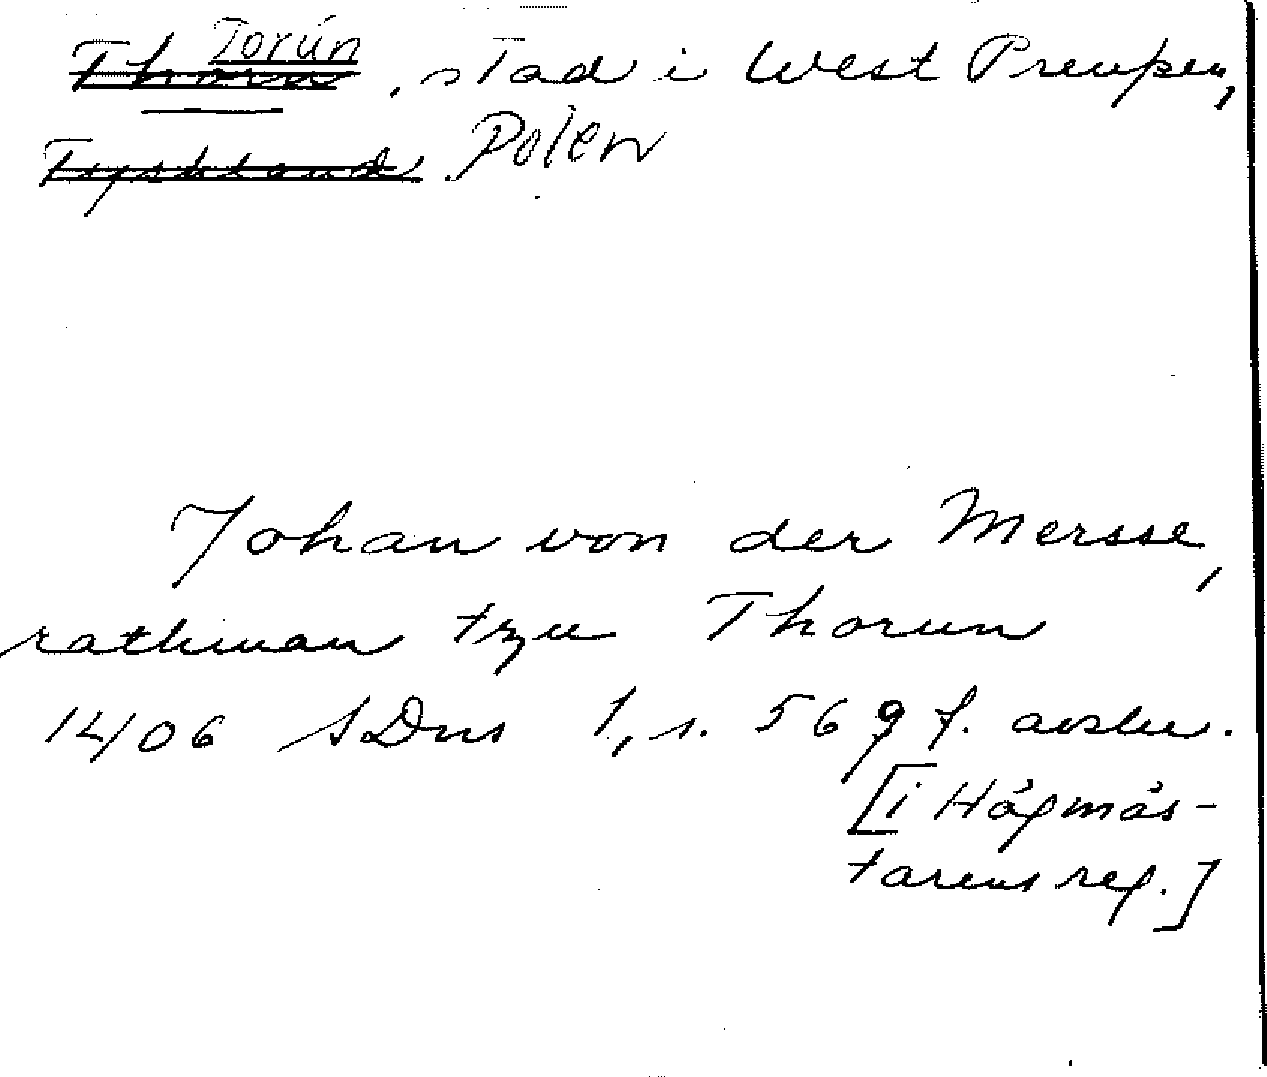 Torún
Thorn, stad i West Preußen,
Tyskland. Polen
Johan von der Mersse,
rathman tzu Thorun
1406 SDns 1, s. 569 f. avskr.
[i Högmäs-
tarens reg.]